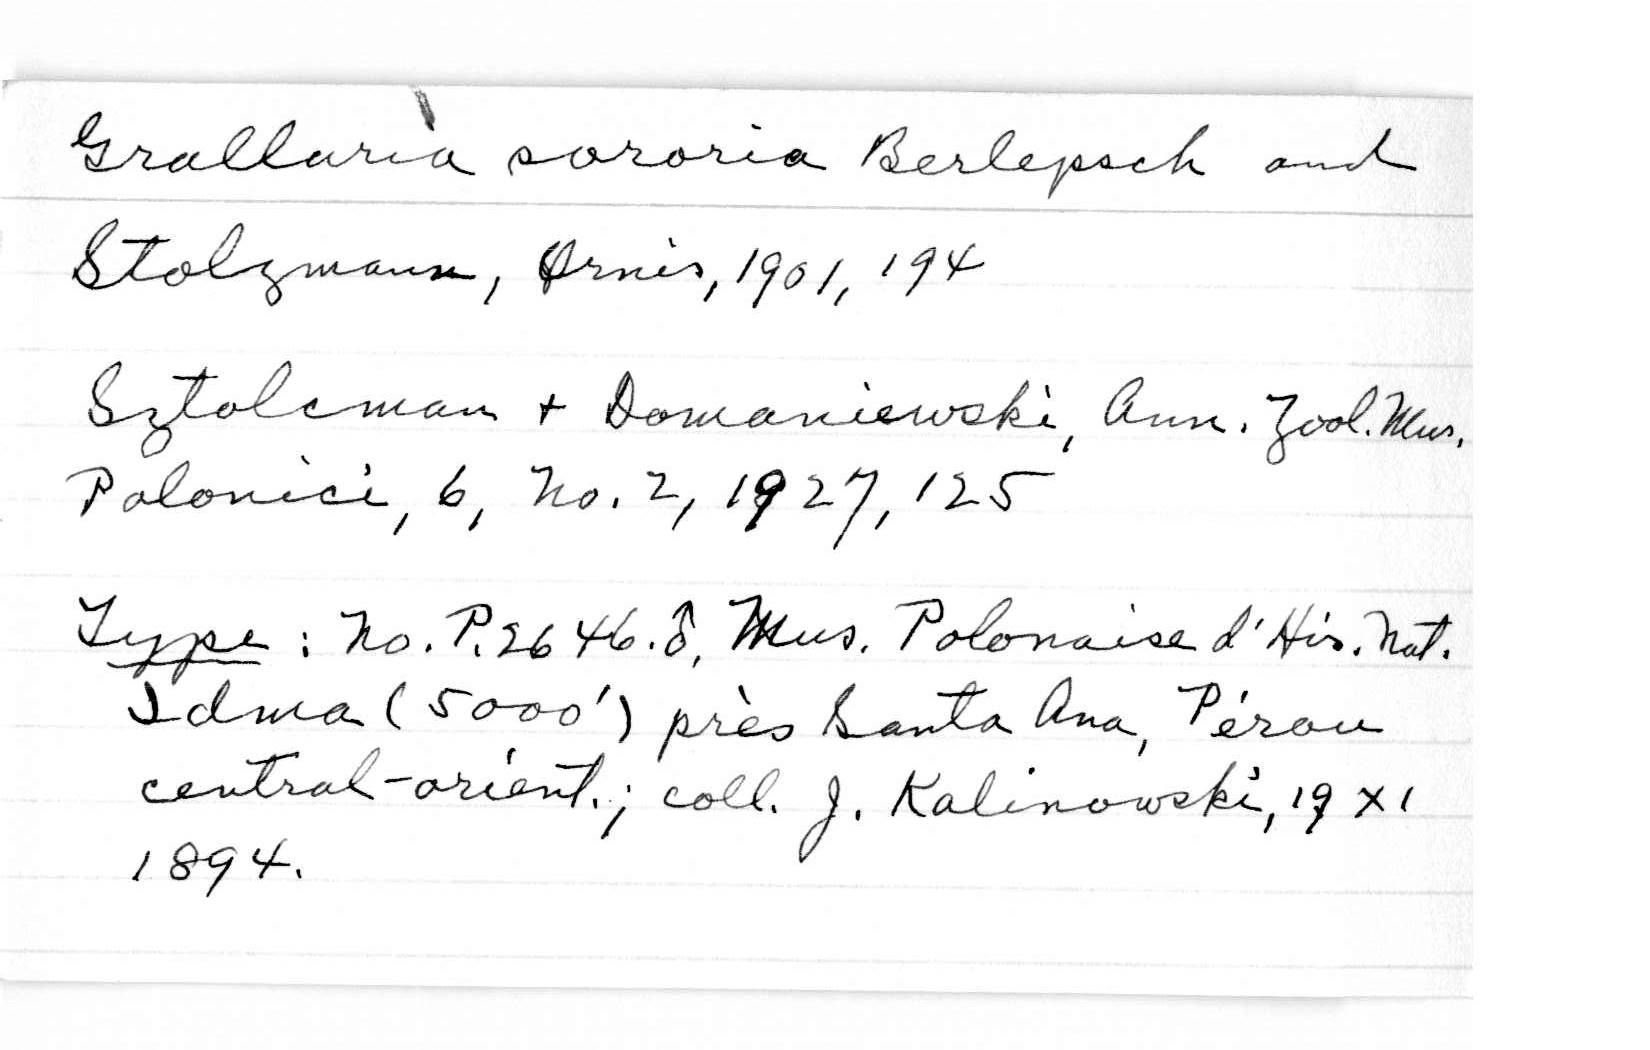 Grallaria sororia Berlepsch and
Stolzmann, Ornis, 1901, 194
Sztolcman + Domaniewski, Ann. Zool. Mus.
Polonici, 6, No. 2, 1927, 125
Type: No. P.2646. ♂, Mus. Polonaise d'His. Nat.
Idma (5000') près Santa Ana, Pérou
central-orient.; coll. J. Kalinowski, 19 XI
1894.